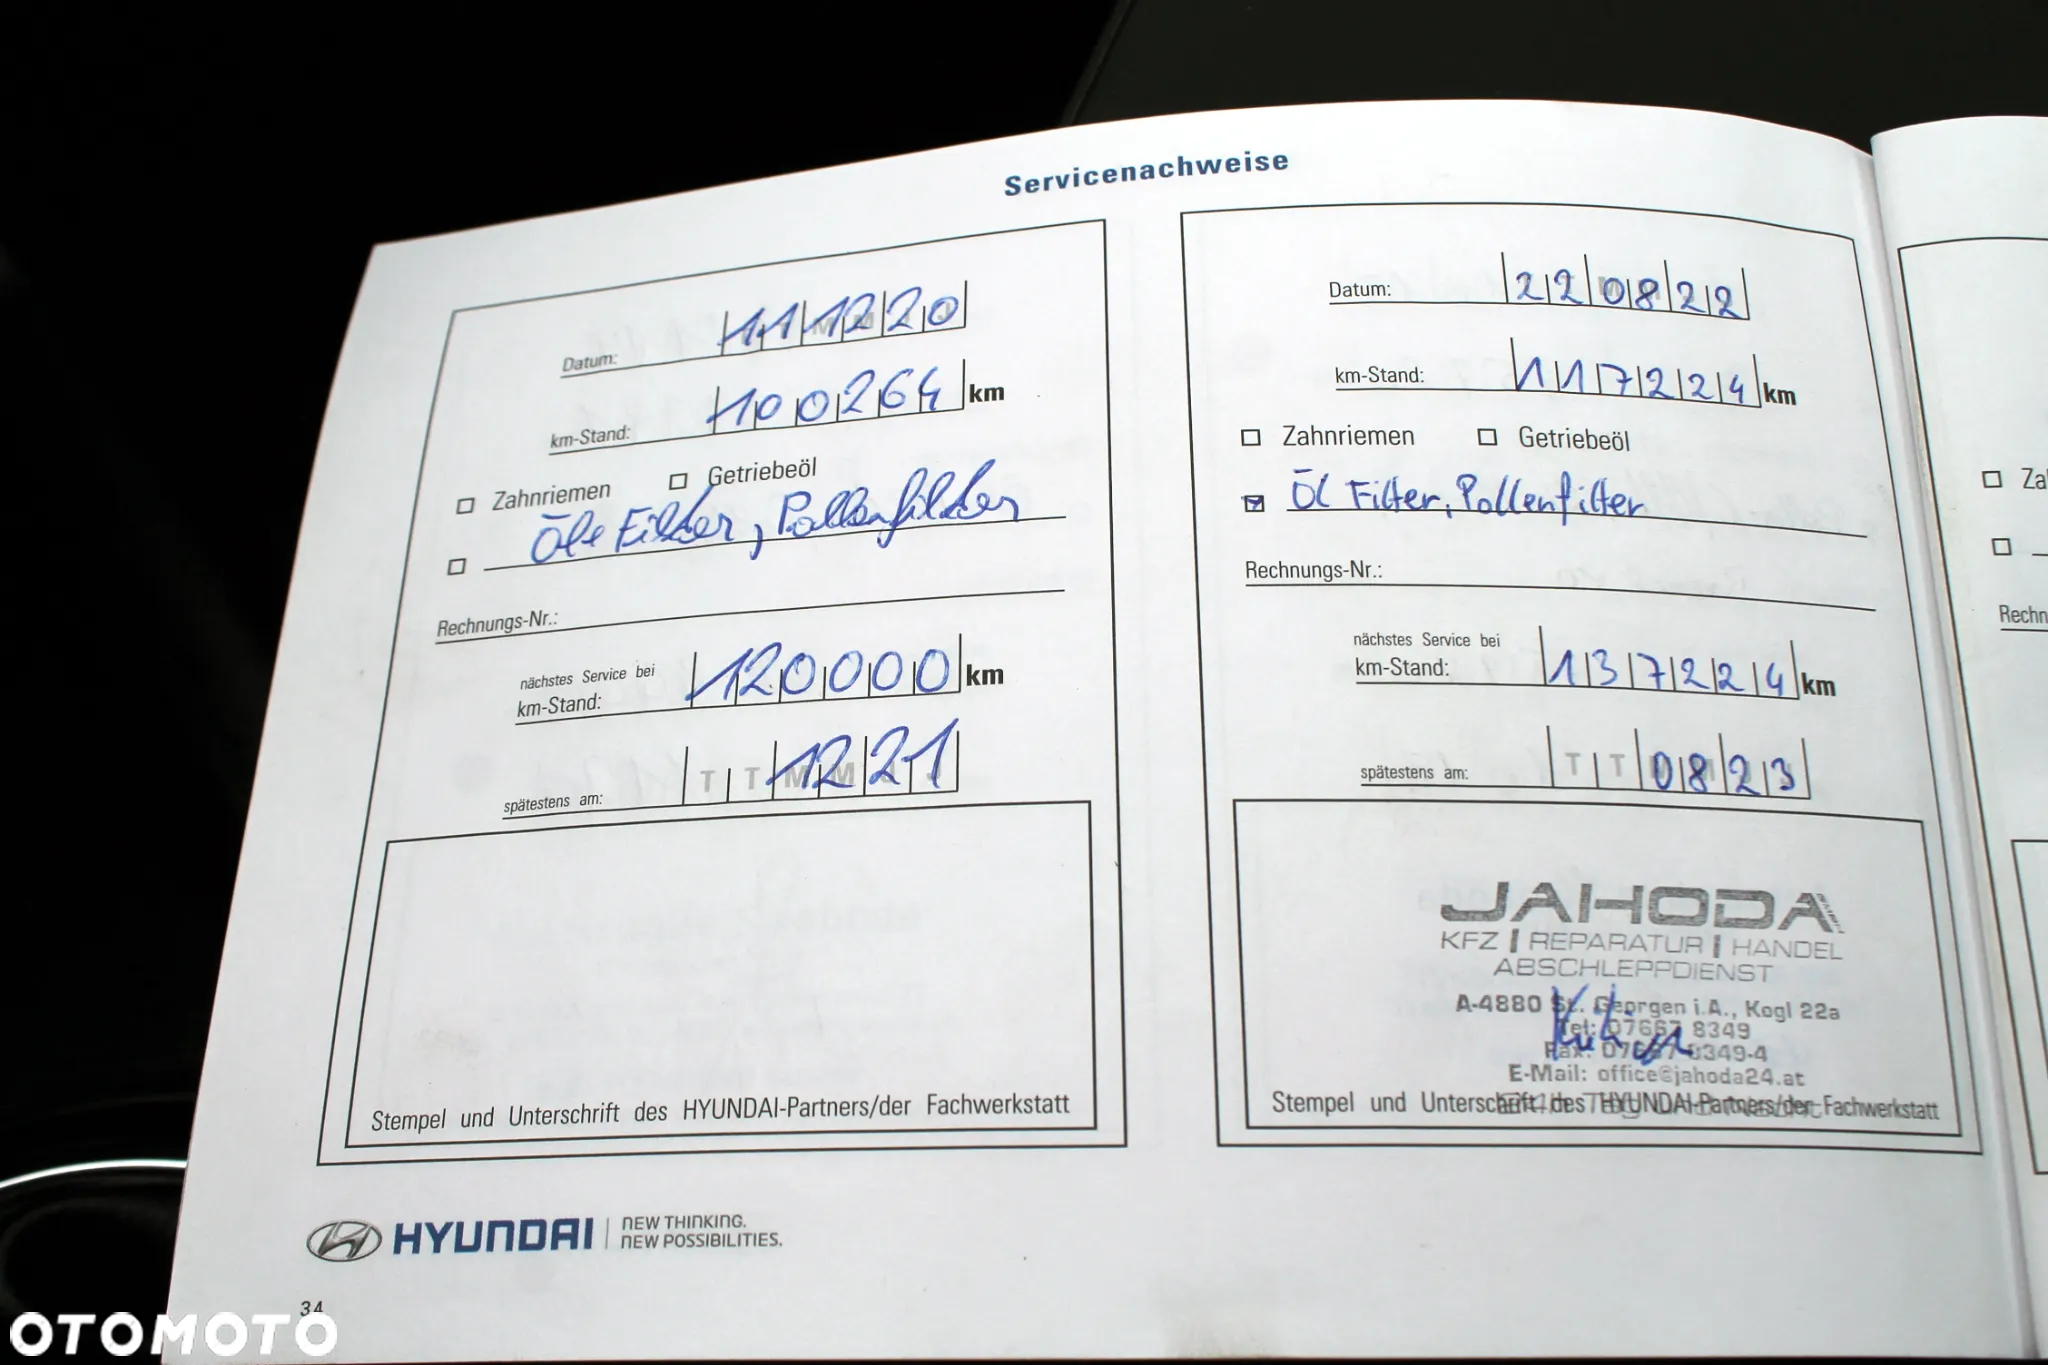 Servicenachweise
Datum: 111220
km-Stand: 100264 km
Zahnriemen Getriebeöl
Öl + Filter, Pollenfilter
Rechnungs-Nr.:
nächstes Service bei
km-Stand: 120000 km
spätestens am: T T 1221
Stempel und Unterschrift des HYUNDAI-Partners/der Fachwerkstatt
Datum: 220822
km-Stand: 117224 km
Zahnriemen Getriebeöl
Öl Filter, Pollenfilter
Rechnungs-Nr.:
nächstes Service bei
km-Stand: 137224 km
spätestens am: T T 0823
JAHODA GMBH
KFZ | REPARATUR | HANDEL
ABSCHLEPPDIENST
A-4880 St. Georgen i.A., Kogl 22a
Tel: 07667 8349
Fax: 07667 8349-4
E-Mail: office@jahoda24.at
Stempel und Unterschrift des HYUNDAI-Partners/der Fachwerkstatt
Za
Rechn
HYUNDAI | NEW THINKING.
NEW POSSIBILITIES.
34
OTOMOTO